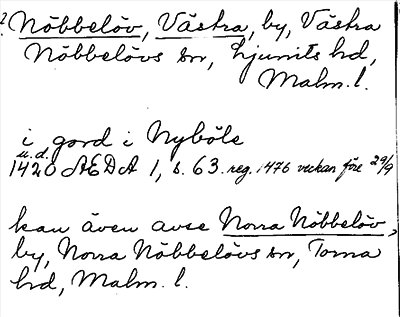 ? Nöbbelöv, Västra, by, Västra
Nöbbelövs sn, Ljunits hd,
Malm. l.
i gord i Nyböle
u.d.
1420 AEDA 1, s. 63. reg. 1476 veckan före 29/9
kan även avse Norra Nöbbelöv,
by, Norra Nöbbelövs sn, Torna
hd, Malm. l.